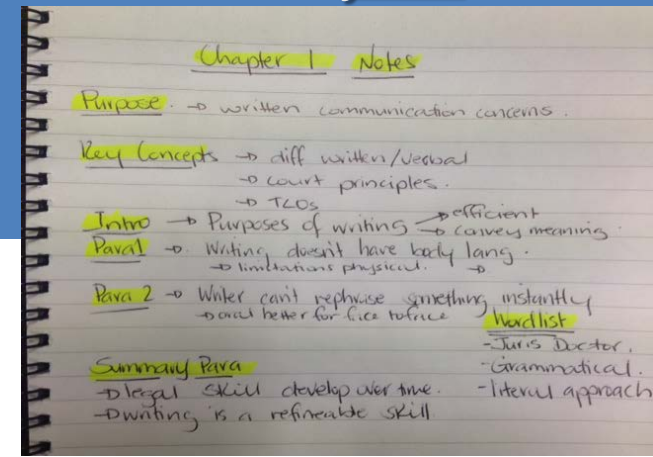 Chapter 1 Notes
Purpose. → written communication concerns.
Key Concepts → diff written/verbal
→ court principles.
→ TLOs
Intro → Purposes of writing → efficient
→ convey meaning.
Para 1 → Writing doesn't have body lang.
→ limitations physical. →
Para 2 → Writer can't rephrase something instantly
→ oral better for face to face
Wordlist
- Juris Doctor.
Summary Para
- Grammatical.
→ legal skill develop over time.
- literal approach
→ writing is a refineable skill